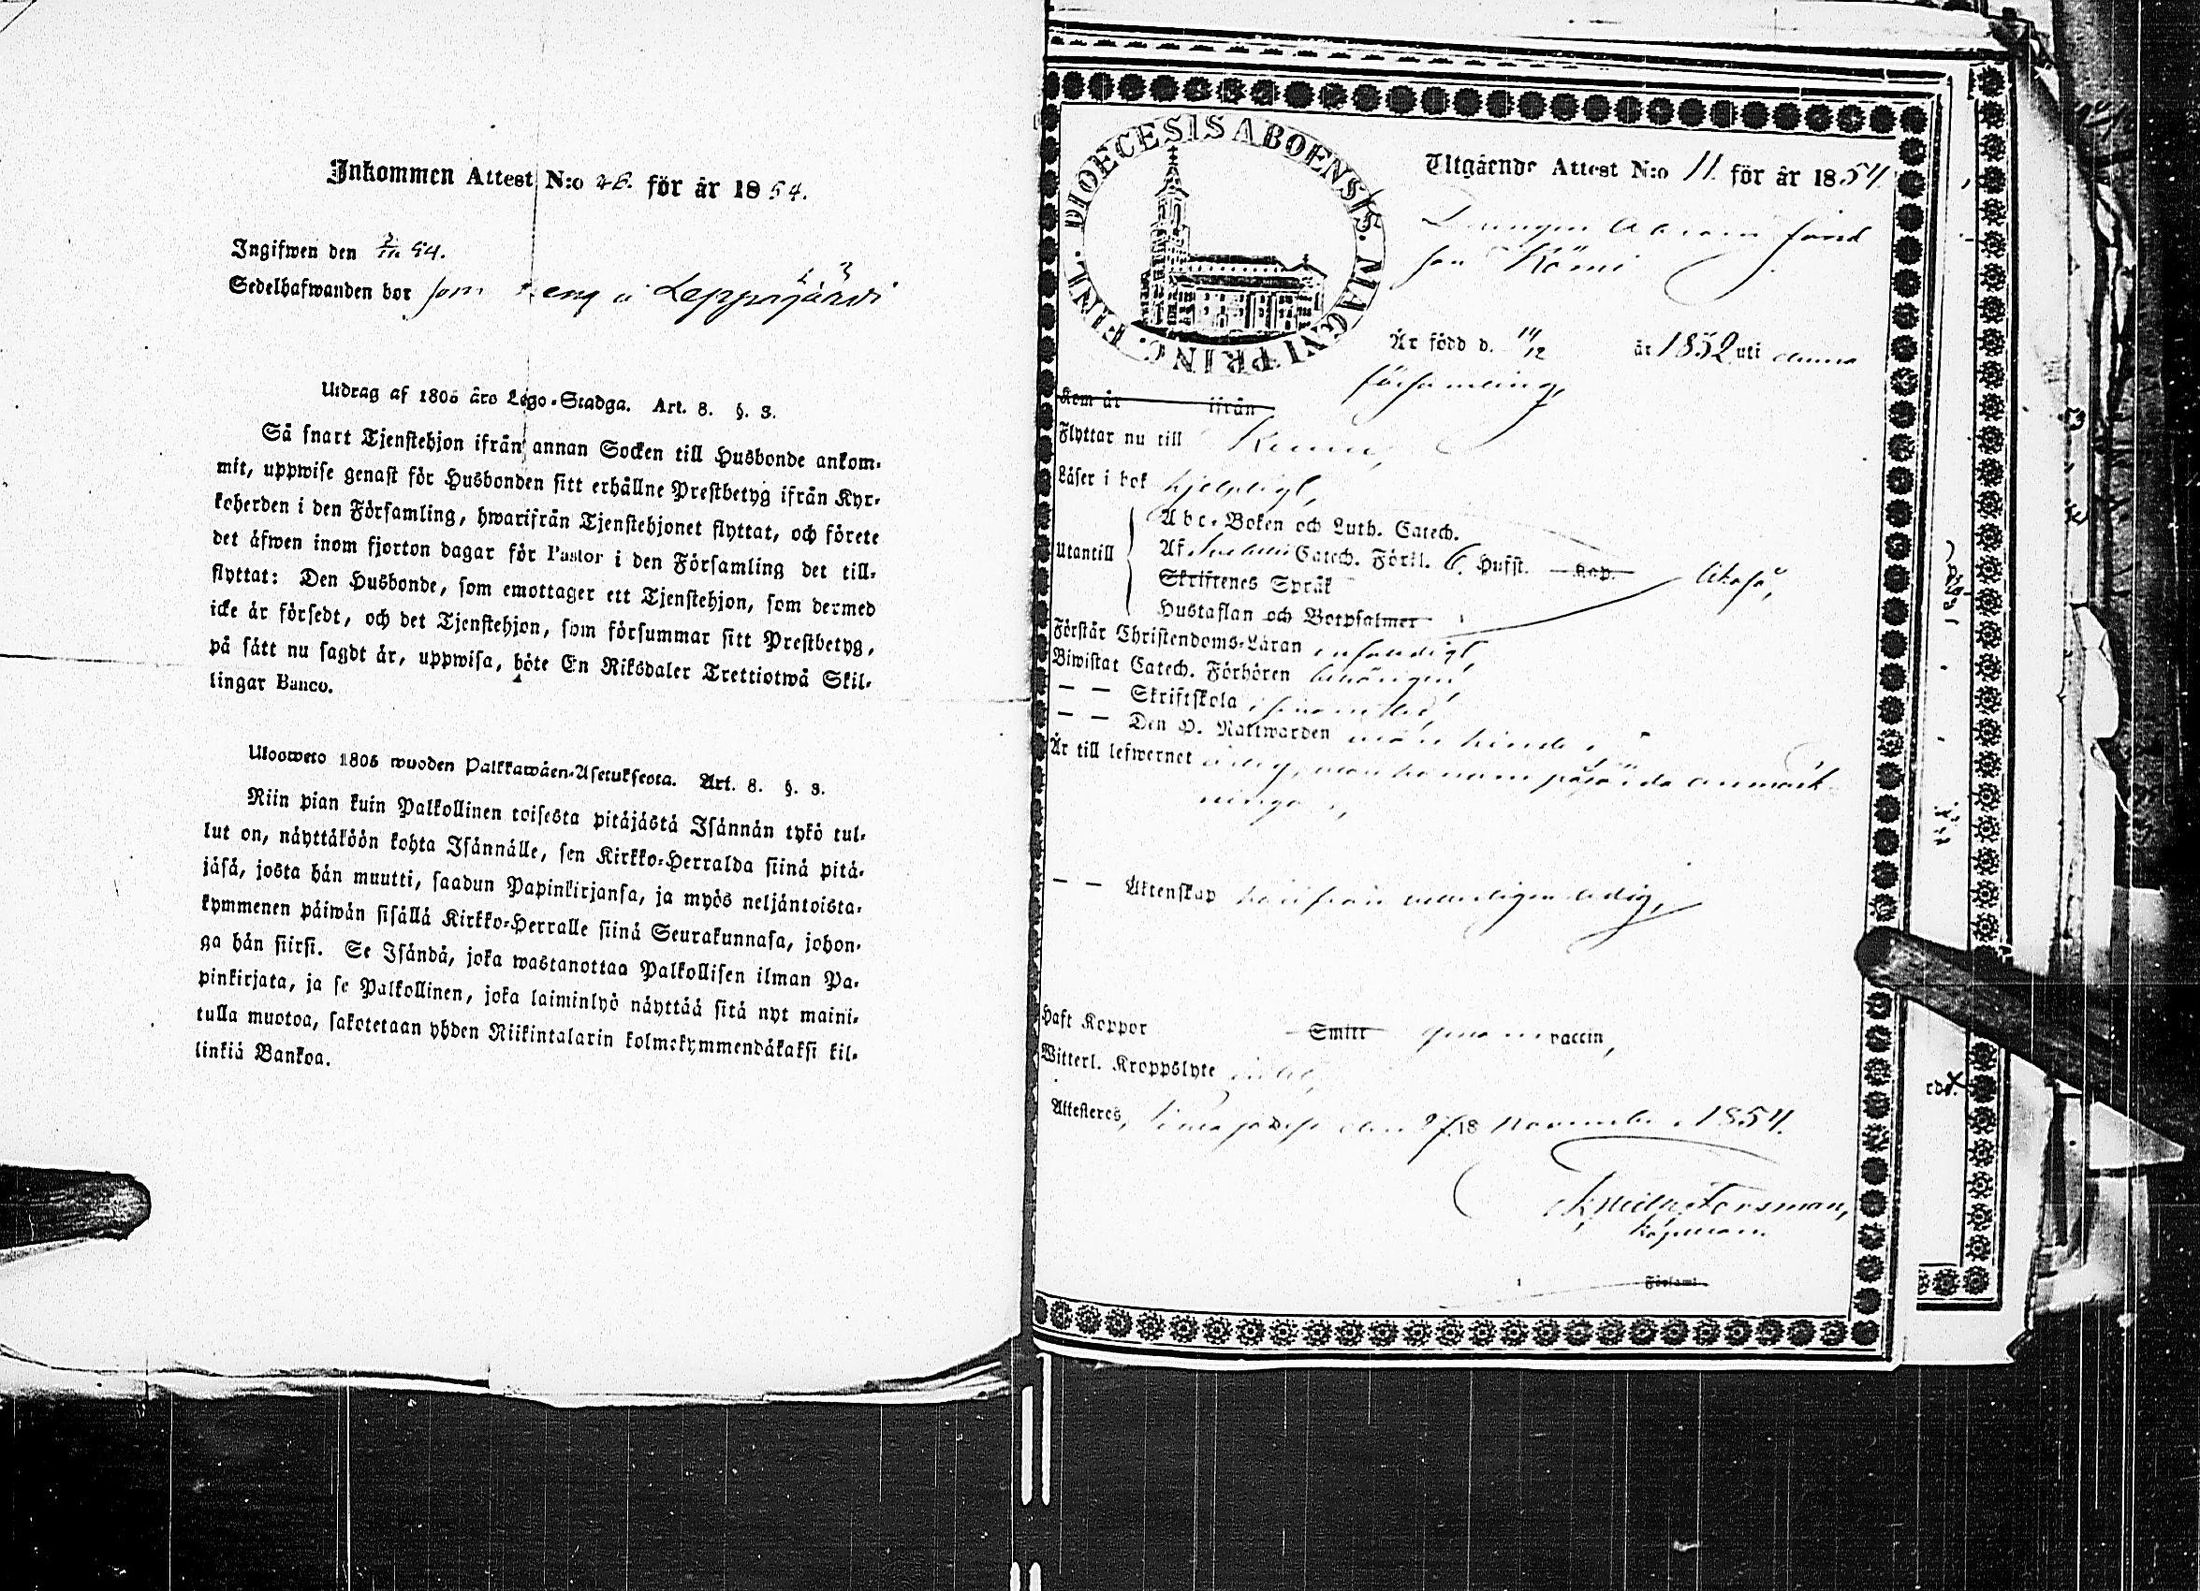 Inkommen Attest N:o 28. för år 1854.
Ingifwen den 54.
Sedelhafwanden bor som dreng i Leppäjärvi
Utdrag af 1805 års Lego-Stadga. Art. 8. §. 3.
Så snart Tjenstehjon ifrån annan Socken till Husbonde ankom-
mit, uppwise genast för Husbonden sitt erhållne Prestbetyg ifrån Kyr-
koherden i den Församling, hwarifrån Tjenstehjonet flyttat, och förete
det åfwen inom fjorton dagar för Pastor i den Församling det till-
flyttat: Den Husbonde, som emottager ett Tjenstehjon, som dermed
icke är försedt, och det Tjenstehjon, som försummar sitt Prestbetyg,
på sätt nu sagdt är, uppwisa, böte En Riksdaler Trettiotwå Skil-
lingar Banco.
Uloswetо 1805 wuoden Palkkawäen-Asetuksesta. Art. 8. §. 3.
Niin pian kuin Palkollinen toisesta pitäjästä Isännän tykö tul-
lut on, näyttäköön kohta Isännälle, sen Kirkko-Herralda siinä pitä-
jäsä, josta hän muutti, saadun Papinkirjansa, ja myös neljäntoista-
kymmenen päiwän sisällä Kirkko-Herralle siinä Seurakunnasa, johon-
ga hän siirsi. Se Isändä, joka wastanottaa Palkollisen ilman Pa-
pinkirjata, ja se Palkollinen, joka laiminlyö näyttää sitä nyt maini-
tulla muotoa, sakotetaan yhden Riikintalarin kolmekymmendäkaksi kil-
linkiä Bankoa.
DIOECESIS ABOENSIS. MAGNI PRINC. FINL.
Utgående Attest N:o 11. för år 1854.
Drengen
son
Är född d. 14/12 år 1832 uti denna
församling,
Kom år ifrån
Flyttar nu till
Läser i bok hjelpligt,
Abc-Boken och Luth. Catech.
Utantill Af Svebelii Catech. Förkl. 6. Hufst. Kap. Likaså,
Skriftenes Språk
Hustaflan och Botpsalmer
Förstår Christendoms-Läran enfaldigt,
Biwistat Catech. Förhören behörigen,
— — Skriftskola
— — Den H. Nattwarden
Är till lefwernet ärlig, anmärk-
ningar,
— — Äktenskap härifrån ledig,
Haft Koppor Smitt genom vaccin,
Witterl. Kroppslyte intet,
Attesteras, den 18 November 1854.
Forsman,
Kapellan.
Församl.